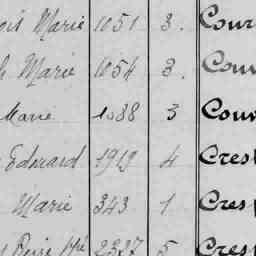 Marie 1051 3. Cour
Marie 1054 3. Cour
Marie 1088 3 Cour
Edouard 1919 4 Cres
Marie 343 1 Cresp
2327 5 Cresp